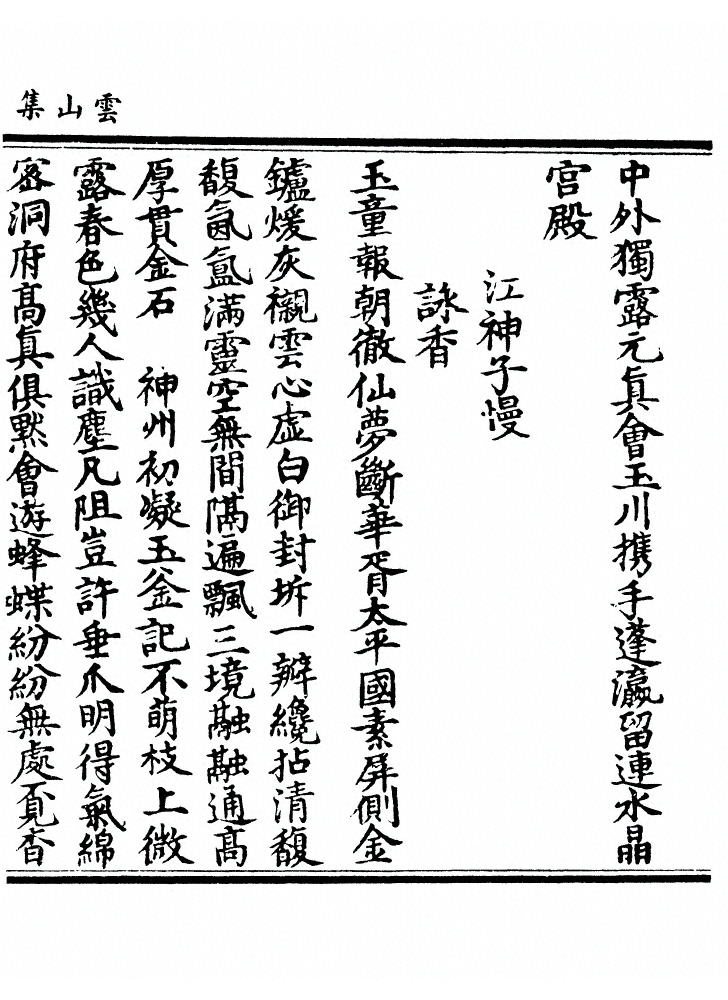 雲山集
中外獨露元真會玉川携手蓬瀛留連水晶
宮殿
江神子慢
詠香
玉童報朝徹仙夢斷華胥太平國素屏側金
鑪煖灰襯雲心虛白御封坼一瓣纔拈清馥
馥氤氳滿靈空無間隔遍飄三境融融通高
厚貫金石　神州初凝玉釜記不萌枝上微
露春色幾人識塵凡阻豈許垂爪明得氣綿
密洞府高真俱默會遊蜂蝶紛紛無處覓杳